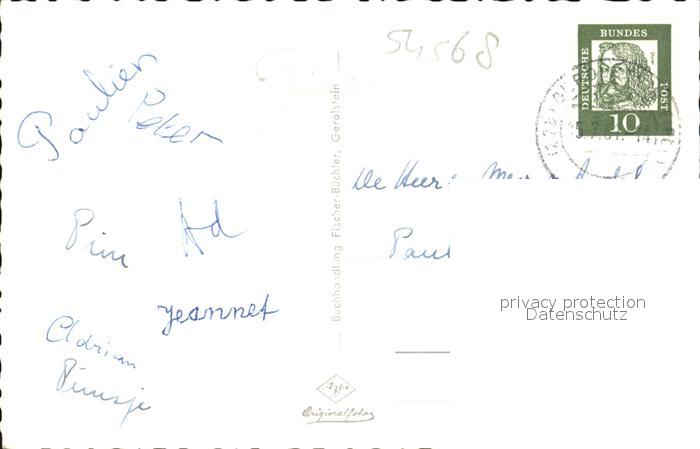 54568
BUNDES
DEUTSCHE
POST
Dürer
10
Paulien
Peter
De Heer
Pim
Ad
Paul
Jeannet
Adrian
Pimsje
Buchhandlung Fischer-Büchler, Gerolstein
Originalfoto
privacy protection
Datenschutz